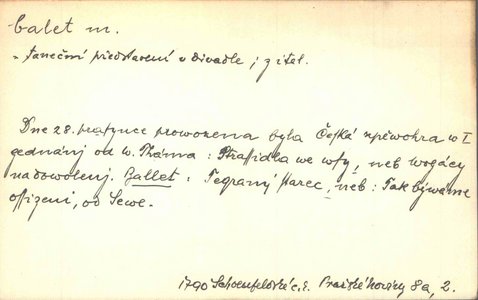 balet m.
- taneční představení v divadle; z ital.
Dne 28. prasynce prowozena byla Česká zpěwohra w I
gednánj od w. Tháma: Strassidla we wsy, neb Wogácy
na dowolenj. Ballet: Tegraný starec, neb: Tak býwáme
ossizeni, od Sewe.
1790 Schoenfeldské c. k. Pražské Nowiny 8a, 2.